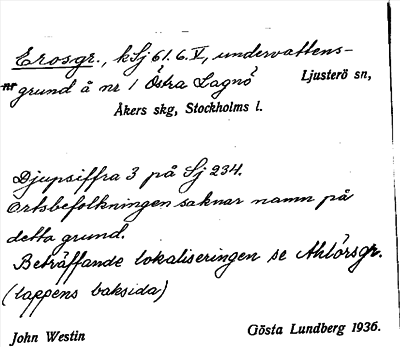 Erosgr., kSj 61.6.V, undervattens-
grund å nr 1 Östra Lagnö
Ljusterö sn,
Åkers skg, Stockholms l.
Djupsiffra 3 på Sj 234.
Ortsbefolkningen saknar namn på
detta grund.
Beträffande lokaliseringen se Ahlörsgr.
(lappens baksida)
John Westin
Gösta Lundberg 1936.